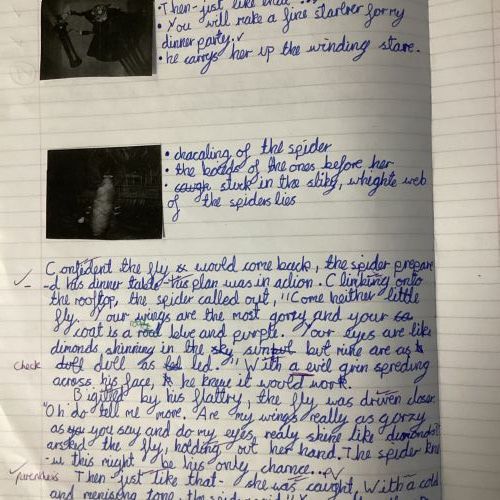 Then - just like that
• You will make a fine starter for my
dinner party. ✓
• he carrys her up the winding stare.
• chacaling of the spider
• the bodds of the ones before her
• stuck in the sliky, whighte web
of the spiders lies
Confident the fly would come back, the spider prepare
-d his dinner table this plan was in action. Clinking onto
the rooftop, the spider called out, "Come neither little
fly. Your wings are the most gorzy and your
coat is a royal blue and purple. Your eyes are like
dimonds skinning in the sunput but mine are as
Check dull as led." With a evil gren spreding
across his face, he knew it would work.
Bigilled by his flattry, the fly was driven closer.
"Oh do tell me more. Are my wings really as gorzy
as you say and do my eyes realy shine like dimonds?"
arsked the fly, holding out her hand. The spider kne
-w this might be his only chance...
Parenthesis Then - just like that - she was caught. With a cold
and menising tone, the spider said